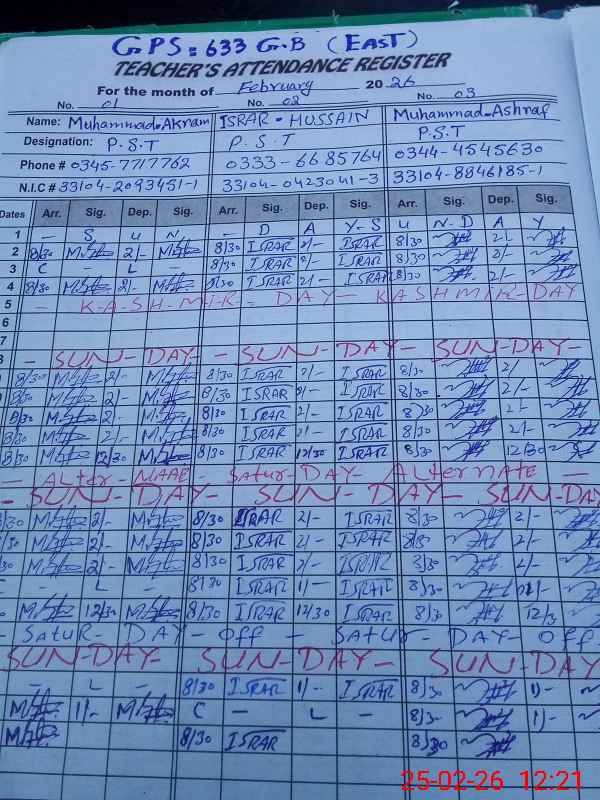 GPS: 633 G.B (EAST)
TEACHER'S ATTENDANCE REGISTER
For the month of February 2026
No. 01 No. 02 No. 03
Name: Muhammad-Akram ISRAR-HUSSAIN Muhammad-Ashraf
Designation: P.S.T P.S.T P.S.T
Phone # 0345-7717762 0333-6685764 0344-4545630
N.I.C # 33104-2093451-1 33104-0423041-3 33104-8846185-1
Dates Arr. Sig. Dep. Sig. Arr. Sig. Dep. Sig. Arr. Sig. Dep. Sig.
1 - S U N - D A Y-S U N-D A Y
2 8/30 2/- 8/30 ISRAR 2/- ISRAR 8/30 2/-
3 C - L - 8/30 ISRAR 2/- ISRAR 8/30 2/-
4 8/30 2/- 8/30 ISRAR 2/- ISRAR 8/30 2/-
5 - KASHMIR- DAY- KASHMIR-DAY
6
7
8 - SUN-DAY- - SUN-DAY- SUN-DAY-
8/30 2/- 8/30 ISRAR 2/- ISRAR 8/30 2/
8/30 2/- 8/30 ISRAR 2/- ISRAR 8/30 2/-
8/30 2/- 8/30 ISRAR 2/- ISRAR 8/30 2/-
8/30 2/- 8/30 ISRAR 2/- ISRAR 8/30 2/-
8/30 12/30 8/30 ISRAR 12/30 ISRAR 8/30 12/30
- Satur-DAY ALTERNATE -
- SUN-DAY- SUN-DAY- SUN-DAY
8/30 2/- 8/30 ISRAR 2/- ISRAR 8/30 2/-
8/30 2/- 8/30 ISRAR 2/- ISRAR 8/30 2/-
8/30 2/- 8/30 ISRAR 2/- ISRAR 8/30 2/-
- L - 8/30 ISRAR 1/- ISRAR 8/30
12/30 8/30 ISRAR 12/30 ISRAR 8/30 12/3
- Satur-DAY-Off - Satur-DAY-Off
SUN-DAY- SUN-DAY- SUN-DAY
- L - 8/30 ISRAR 1/- ISRAR 8/30 1/-
1/- C - L - 8/30 1/-
8/30 ISRAR 8/30
25-02-26 12:21